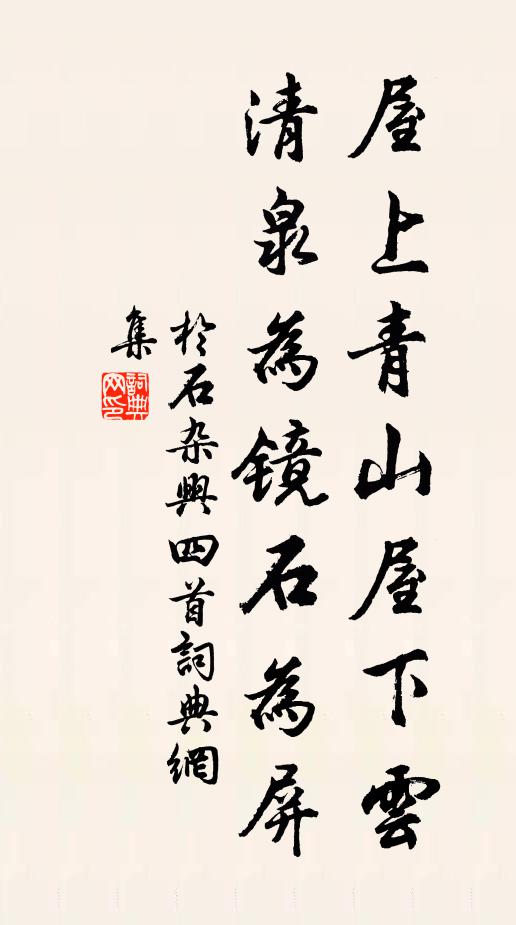 屋上青山屋下雲
清泉為镜石為屏
於石杂興四首詞典網
集
詞典网印